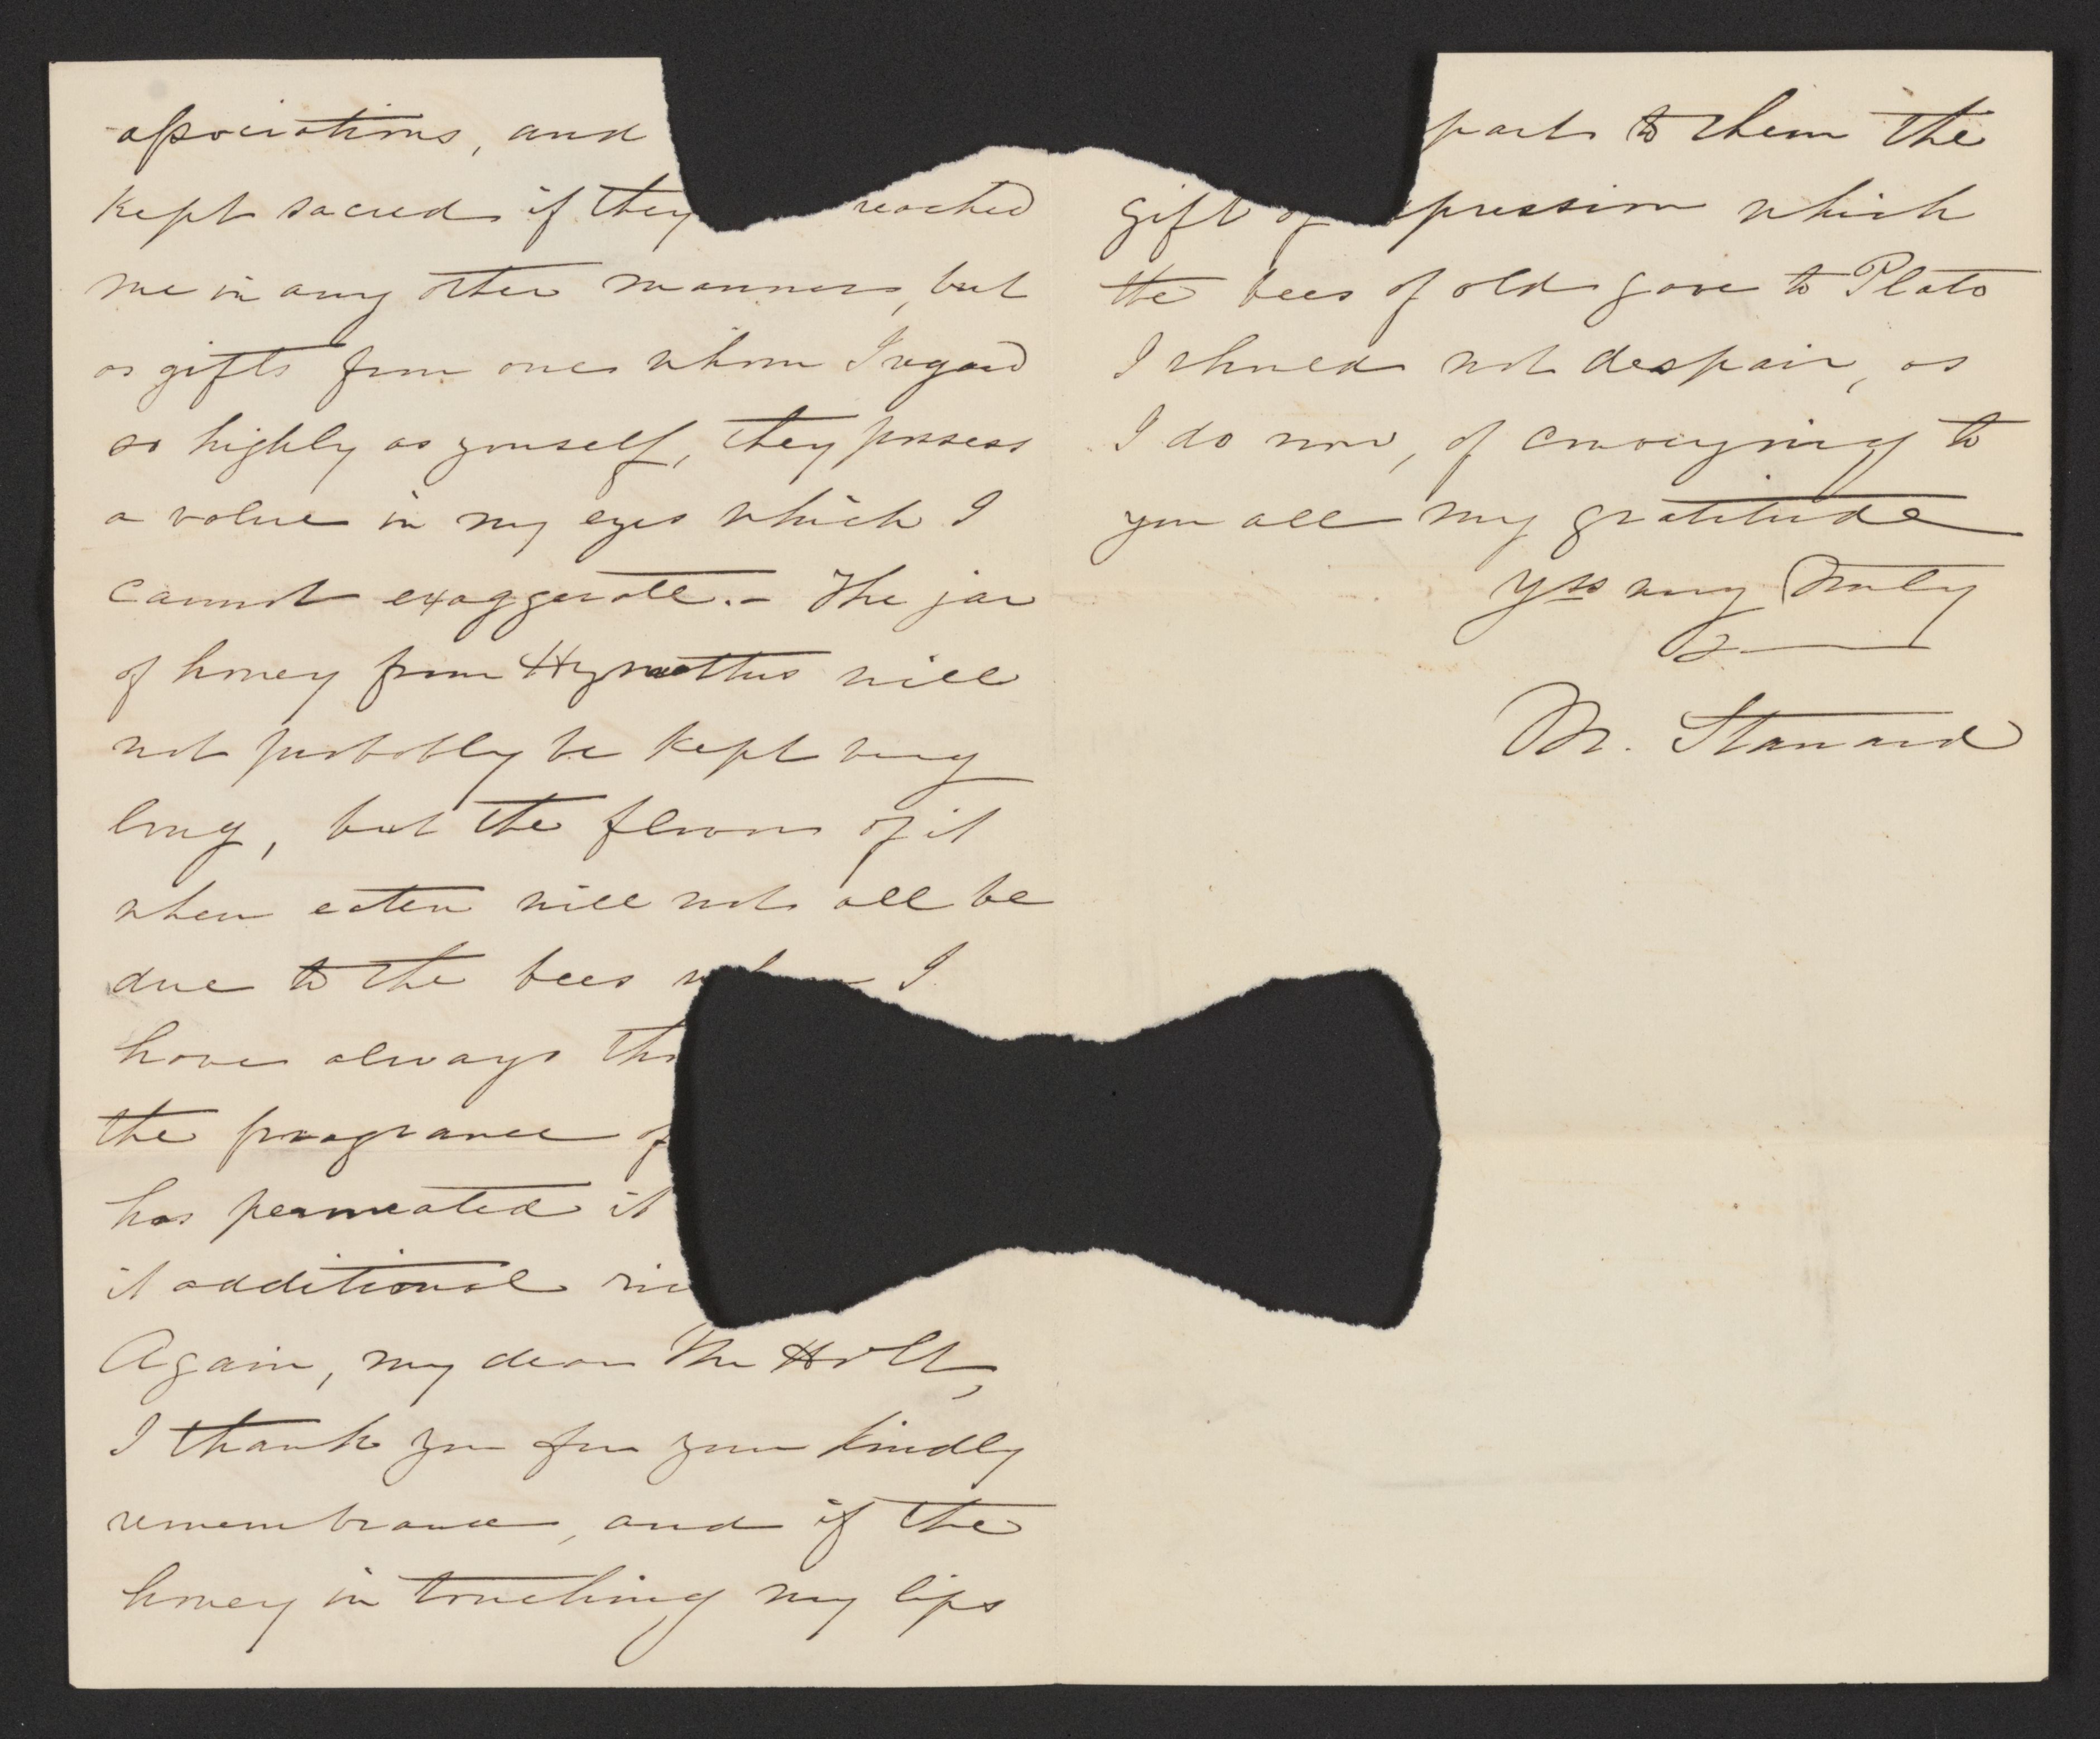 associations, and
kept sacred if they reached
me in any other manner, but
as gifts from one whom I regard
so highly as yourself, they possess
a value in my eyes which I
cannot exaggerate. - The jar
of honey from Hymettus will
not probably be kept very
long, but the flavor of it
when eaten will not all be
due to the bees I
have always tho
the fragrance of
has permeated it
it additional ric
Again, my dear Mr Holt,
I thank you for your kindly
remembrance, and if the
honey in touching my lips
parts to them the
gift of pression which
the bees of old gave to Plato
I should not despair, as
I do now, of conveying to
you all my gratitude
Yrs very truly
M. Stanard